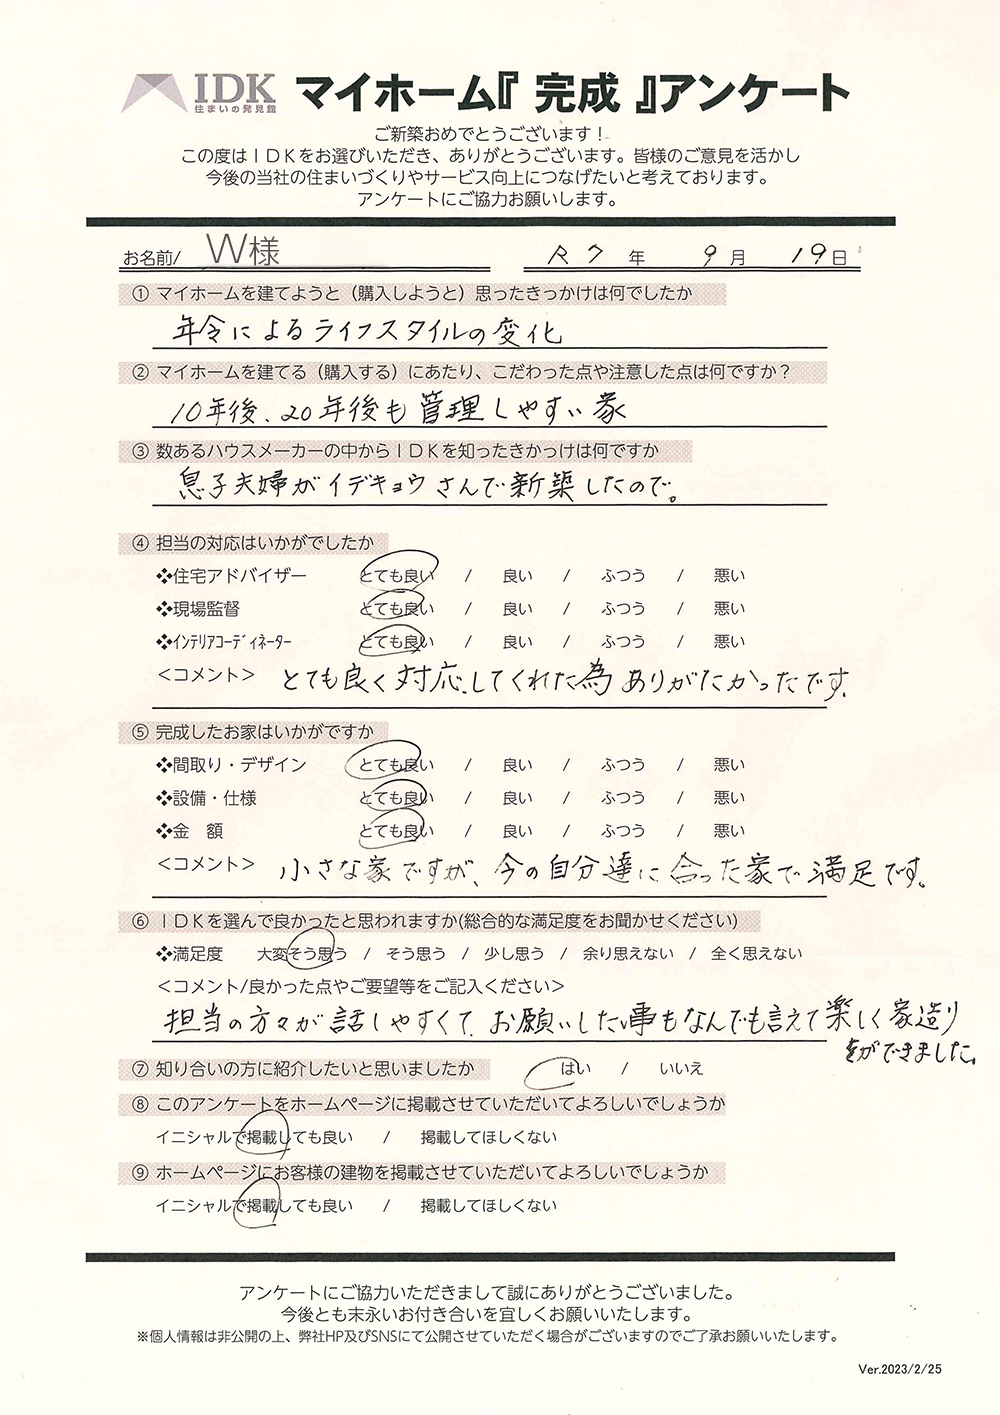 IDK 住まいの発見館 マイホーム『 完成 』アンケート
ご新築おめでとうございます！
この度はＩＤＫをお選びいただき、ありがとうございます。皆様のご意見を活かし
今後の当社の住まいづくりやサービス向上につなげたいと考えております。
アンケートにご協力お願いします。
お名前/ W様 R7 年 9 月 19 日
① マイホームを建てようと（購入しようと）思ったきっかけは何でしたか
年令によるライフスタイルの変化
② マイホームを建てる（購入する）にあたり、こだわった点や注意した点は何ですか？
10年後、20年後も管理しやすい家
③ 数あるハウスメーカーの中からＩＤＫを知ったきかっけは何ですか
息子夫婦がイデキョウさんで新築したので。
④ 担当の対応はいかがでしたか
❖住宅アドバイザー とても良い / 良い / ふつう / 悪い
❖現場監督 とても良い / 良い / ふつう / 悪い
❖ｲﾝﾃﾘｱｺｰﾃﾞｨﾈｰﾀｰ とても良い / 良い / ふつう / 悪い
＜コメント＞ とても良く対応してくれた為ありがたかったです。
⑤ 完成したお家はいかがですか
❖間取り・デザイン とても良い / 良い / ふつう / 悪い
❖設備・仕様 とても良い / 良い / ふつう / 悪い
❖金　額 とても良い / 良い / ふつう / 悪い
＜コメント＞ 小さな家ですが、今の自分達に合った家で満足です。
⑥ ＩＤＫを選んで良かったと思われますか(総合的な満足度をお聞かせください)
❖満足度 大変そう思う / そう思う / 少し思う / 余り思えない / 全く思えない
＜コメント/良かった点やご要望等をご記入ください＞
担当の方々が話しやすくて、お願いしたい事もなんでも言えて楽しく家造り
ができました。
⑦ 知り合いの方に紹介したいと思いましたか はい / いいえ
⑧ このアンケートをホームページに掲載させていただいてよろしいでしょうか
イニシャルで掲載しても良い / 掲載してほしくない
⑨ ホームページにお客様の建物を掲載させていただいてよろしいでしょうか
イニシャルで掲載しても良い / 掲載してほしくない
アンケートにご協力いただきまして誠にありがとうございました。
今後とも末永いお付き合いを宜しくお願いいたします。
※個人情報は非公開の上、弊社HP及びSNSにて公開させていただく場合がございますのでご了承お願いいたします。
Ver.2023/2/25